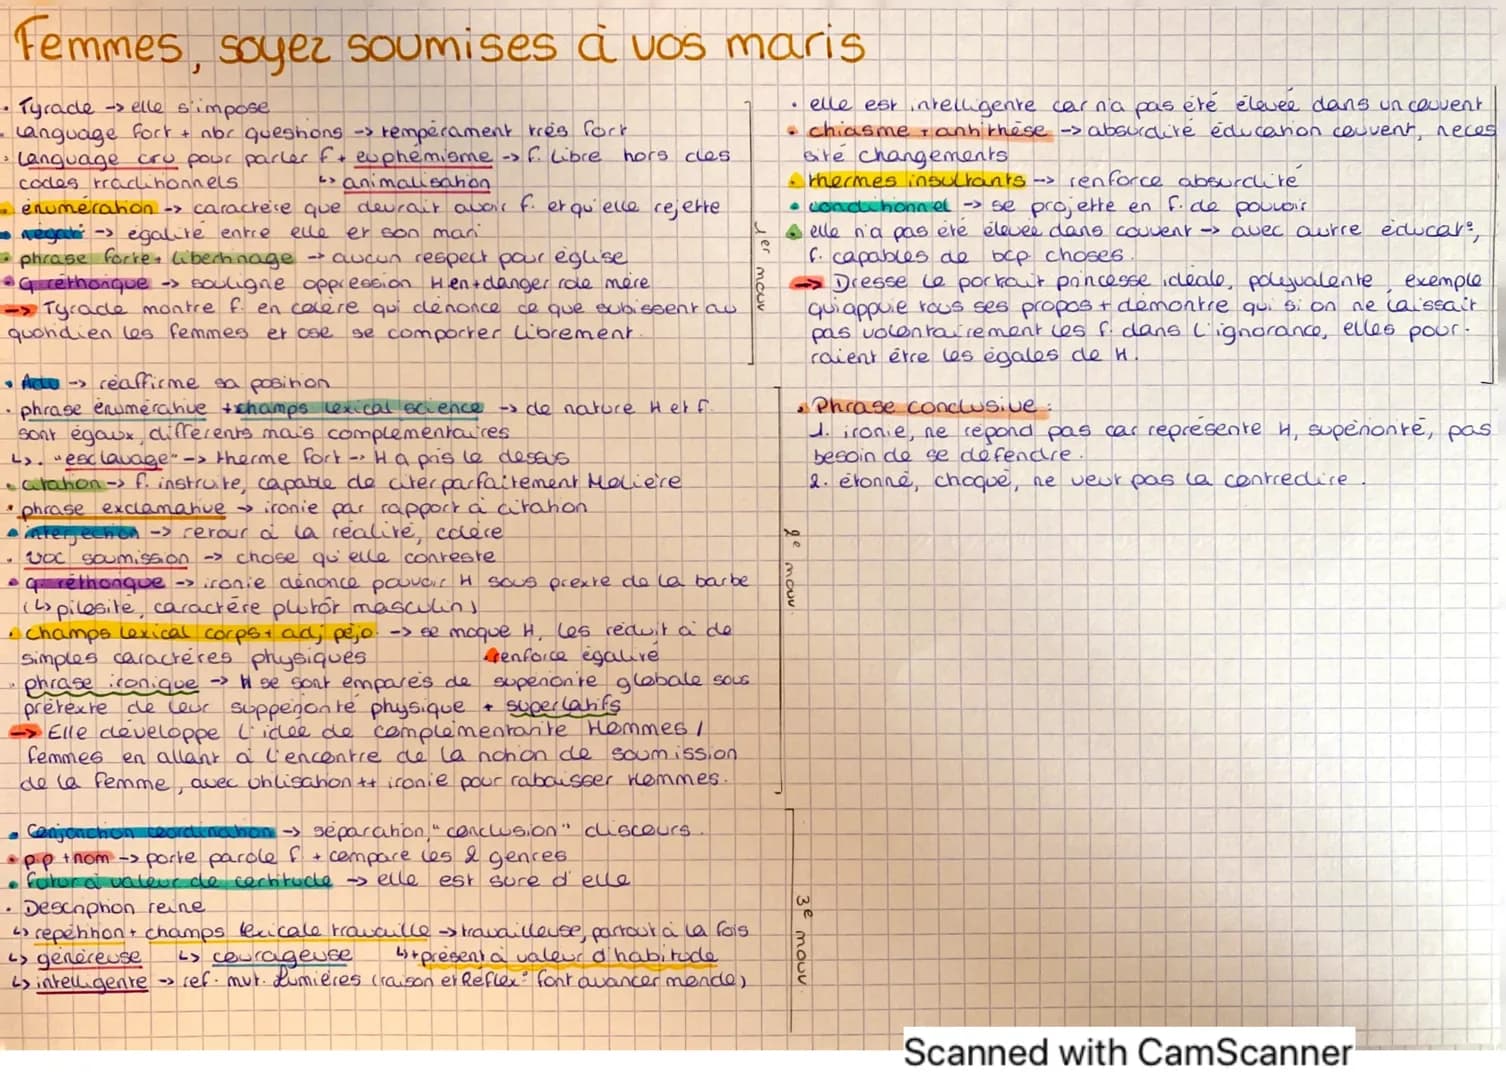 Femmes, soyez soumises à vos maris
• Tyrade -> elle s'impose
• Language fort + nbr questions -> tempérament très fort
• Language cru pour parler f + euphémisme -> f. libre hors des
codes traditionnels ↳ animalisation
• énumération -> caractère que devrait avoir f. et qu'elle rejette
• négati° -> égalité entre elle et son mari
• phrase forte + libertinage -> aucun respect pour église
• Q réthorique -> souligne oppression H en + danger role mère
-> Tyrade montre f. en colère qui dénonce ce que subissent au
quotidien les femmes et ose se comporter librement.
1er mouv
• Adv -> réaffirme sa position
• phrase énumérative + champs lexical science -> de nature H et f.
sont égaux, différents mais complémentaires
↳. "esclavage" -> therme fort -> H a pris le dessus
• citation -> f. instruite, capable de citer parfaitement Molière
• phrase exclamative -> ironie par rapport à citation
• interjection -> retour à la réalité, colère
• voc soumission -> chose qu'elle conteste
• q réthorique -> ironie dénonce pouvoir H sous prexte de la barbe
(↳ pilosité, caractère plutôt masculin)
• champs lexical corps + adj péjo. -> se moque H, les réduit à de
simples caractères physiques renforce égalité
• phrase ironique -> H se sont emparés de supériorité globale sous
prétexte de leur suppériorité physique + superlatifs
-> Elle développe l'idée de complémentarité Hommes /
femmes en allant à l'encontre de la notion de soumission
de la femme, avec utilisation ++ ironie pour rabaisser Hommes.
2e mouv
• Conjonction coordination -> séparation, "conclusion" discours.
• p.p + nom -> porte parole f + compare les 2 genres
• futur à valeur de certitude -> elle est sure d'elle
• Description reine
↳ répétition + champs lexicale travaille -> travailleuse, partout à la fois
↳ généreuse ↳ courageuse ↳ + présent à valeur d'habitude
↳ intelligente -> ref. mvt. Lumières (raison et Reflex° font avancer monde)
3e mouv
• elle est intelligente car n'a pas été élevée dans un couvent
• chiasme + antithèse -> absurdité éducation couvent, neces
sité changements
• thermes insultants -> renforce absurdité
• conditionnel -> se projette en f. de pouvoir
elle n'a pas été élevée dans couvent -> avec autre éducat°,
f. capables de bcp choses.
-> Dresse le portrait princesse idéale, polyvalente, exemple
qui appuie tous ses propos + démontre qui si on ne laissait
pas volontairement les f. dans l'ignorance, elles pour-
raient être les égales de H.
• Phrase conclusive :
1. ironie, ne répond pas car représente H, supériorité, pas
besoin de se défendre.
2. étonné, choqué, ne veut pas la contredire.
Scanned with CamScanner